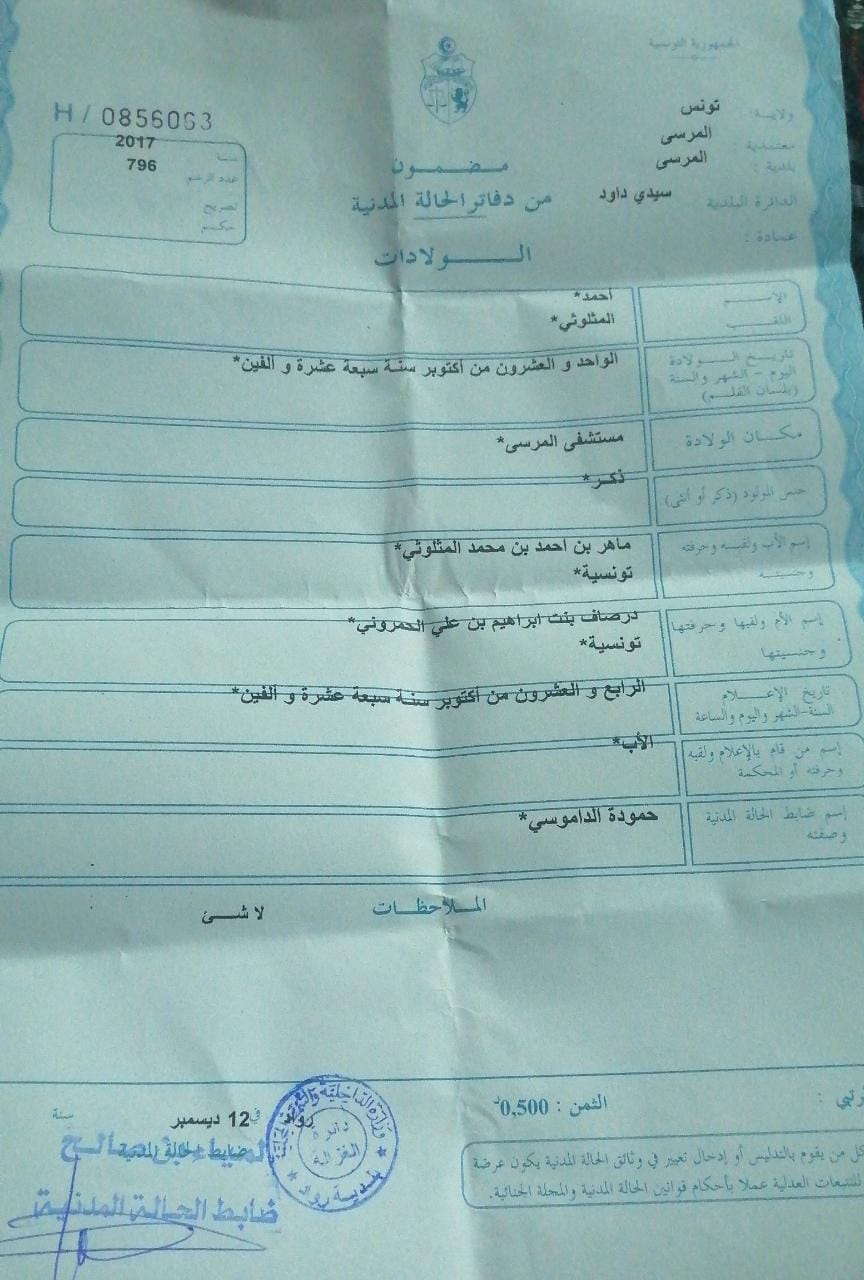 الجمهورية التونسية
ولاية: تونس
معتمدية : المرسى
بلدية : المرسى
الدائرة البلدية سيدي داود
عمادة :
H / 0856063
سنة 2017
عدد الرسم 796
تصريح
حكم
مضمون
من دفاتر الحالة المدنية
الولادات
الإسم أحمد*
اللقب المثلوثي*
تاريخ الولادة
اليوم - الشهر والسنة
(بلسان القلم)
الواحد و العشرون من أكتوبر سنة سبعة عشرة و ألفين*
مكان الولادة مستشفى المرسى*
جنس المولود (ذكر أو أنثى) ذكر*
إسم الأب ولقبه وحرفته
وجنسيته
ماهر بن احمد بن محمد المثلوثي*
تونسية*
إسم الأم ولقبها وحرفتها
وجنسيتها
درصاف بنت ابراهيم بن علي الحمروني*
تونسية*
تاريخ الإعلام
السنة-الشهر واليوم والساعة
الرابع و العشرون من أكتوبر سنة سبعة عشرة و ألفين*
إسم من قام بالإعلام ولقبه
وحرفته أو المحكمة
الأب*
إسم ضابط الحالة المدنية
وصفته
حمودة الداموسي*
الملاحظات
لا شئ
الثمن : 0,500د
رواد في 12 ديسمبر سنة
ضابط الحالة المدنية
ضابط الحالة المدنية
دائرة
الغزالة
بلدية رواد
كل من يقوم بالتدليس أو إدخال تغيير في وثائق الحالة المدنية يكون عرضة
للتتبعات العدلية عملا بأحكام قوانين الحالة المدنية والمجلة الجنائية.